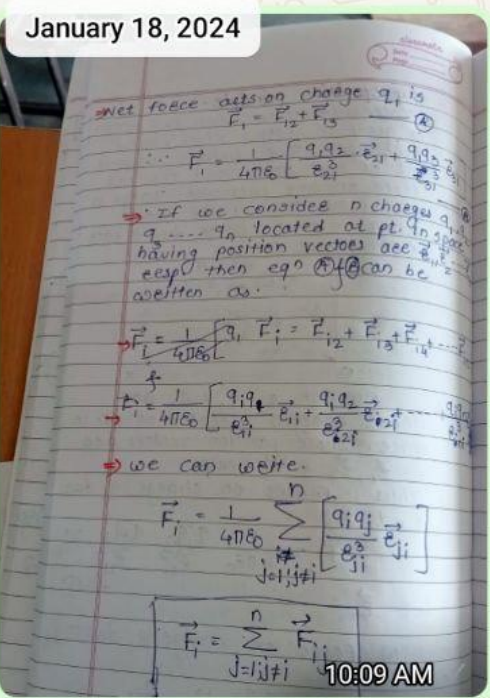 January 18, 2024
classmate
Date
Page
⇒ Net force acts on charge q₁ is
F⃗₁ = F⃗₁₂ + F⃗₁₃ — Ⓐ
∴ F⃗₁ = 1/4πε₀ [ q₁q₂/r³₂₁ · r⃗₂₁ + q₁q₃/r³₃₁ r⃗₃₁
⇒ · If we consider n charges q₁
q₃ ..... qₙ located at pt. in space
having position vectors are r⃗₁, r⃗₂
resp. then eqn Ⓐ & Ⓑ can be
written as.
→ F⃗ᵢ = 1/4πε₀ [ q₁ F⃗ᵢ = F⃗ᵢ₂ + F⃗ᵢ₃ + F⃗ᵢ₄ + ....
&
→ F⃗ᵢ = 1/4πε₀ [ qᵢq₁/r³₁ᵢ r⃗₁ᵢ + qᵢq₂/r³₂ᵢ r⃗₂ᵢ + ......
⇒ we can write.
F⃗ᵢ = 1/4πε₀ n Σ j=1; j≠i [ qᵢqⱼ/r³ⱼᵢ r⃗ⱼᵢ ]
F⃗ᵢ = n Σ j=1; j≠i F⃗ᵢⱼ
10:09 AM